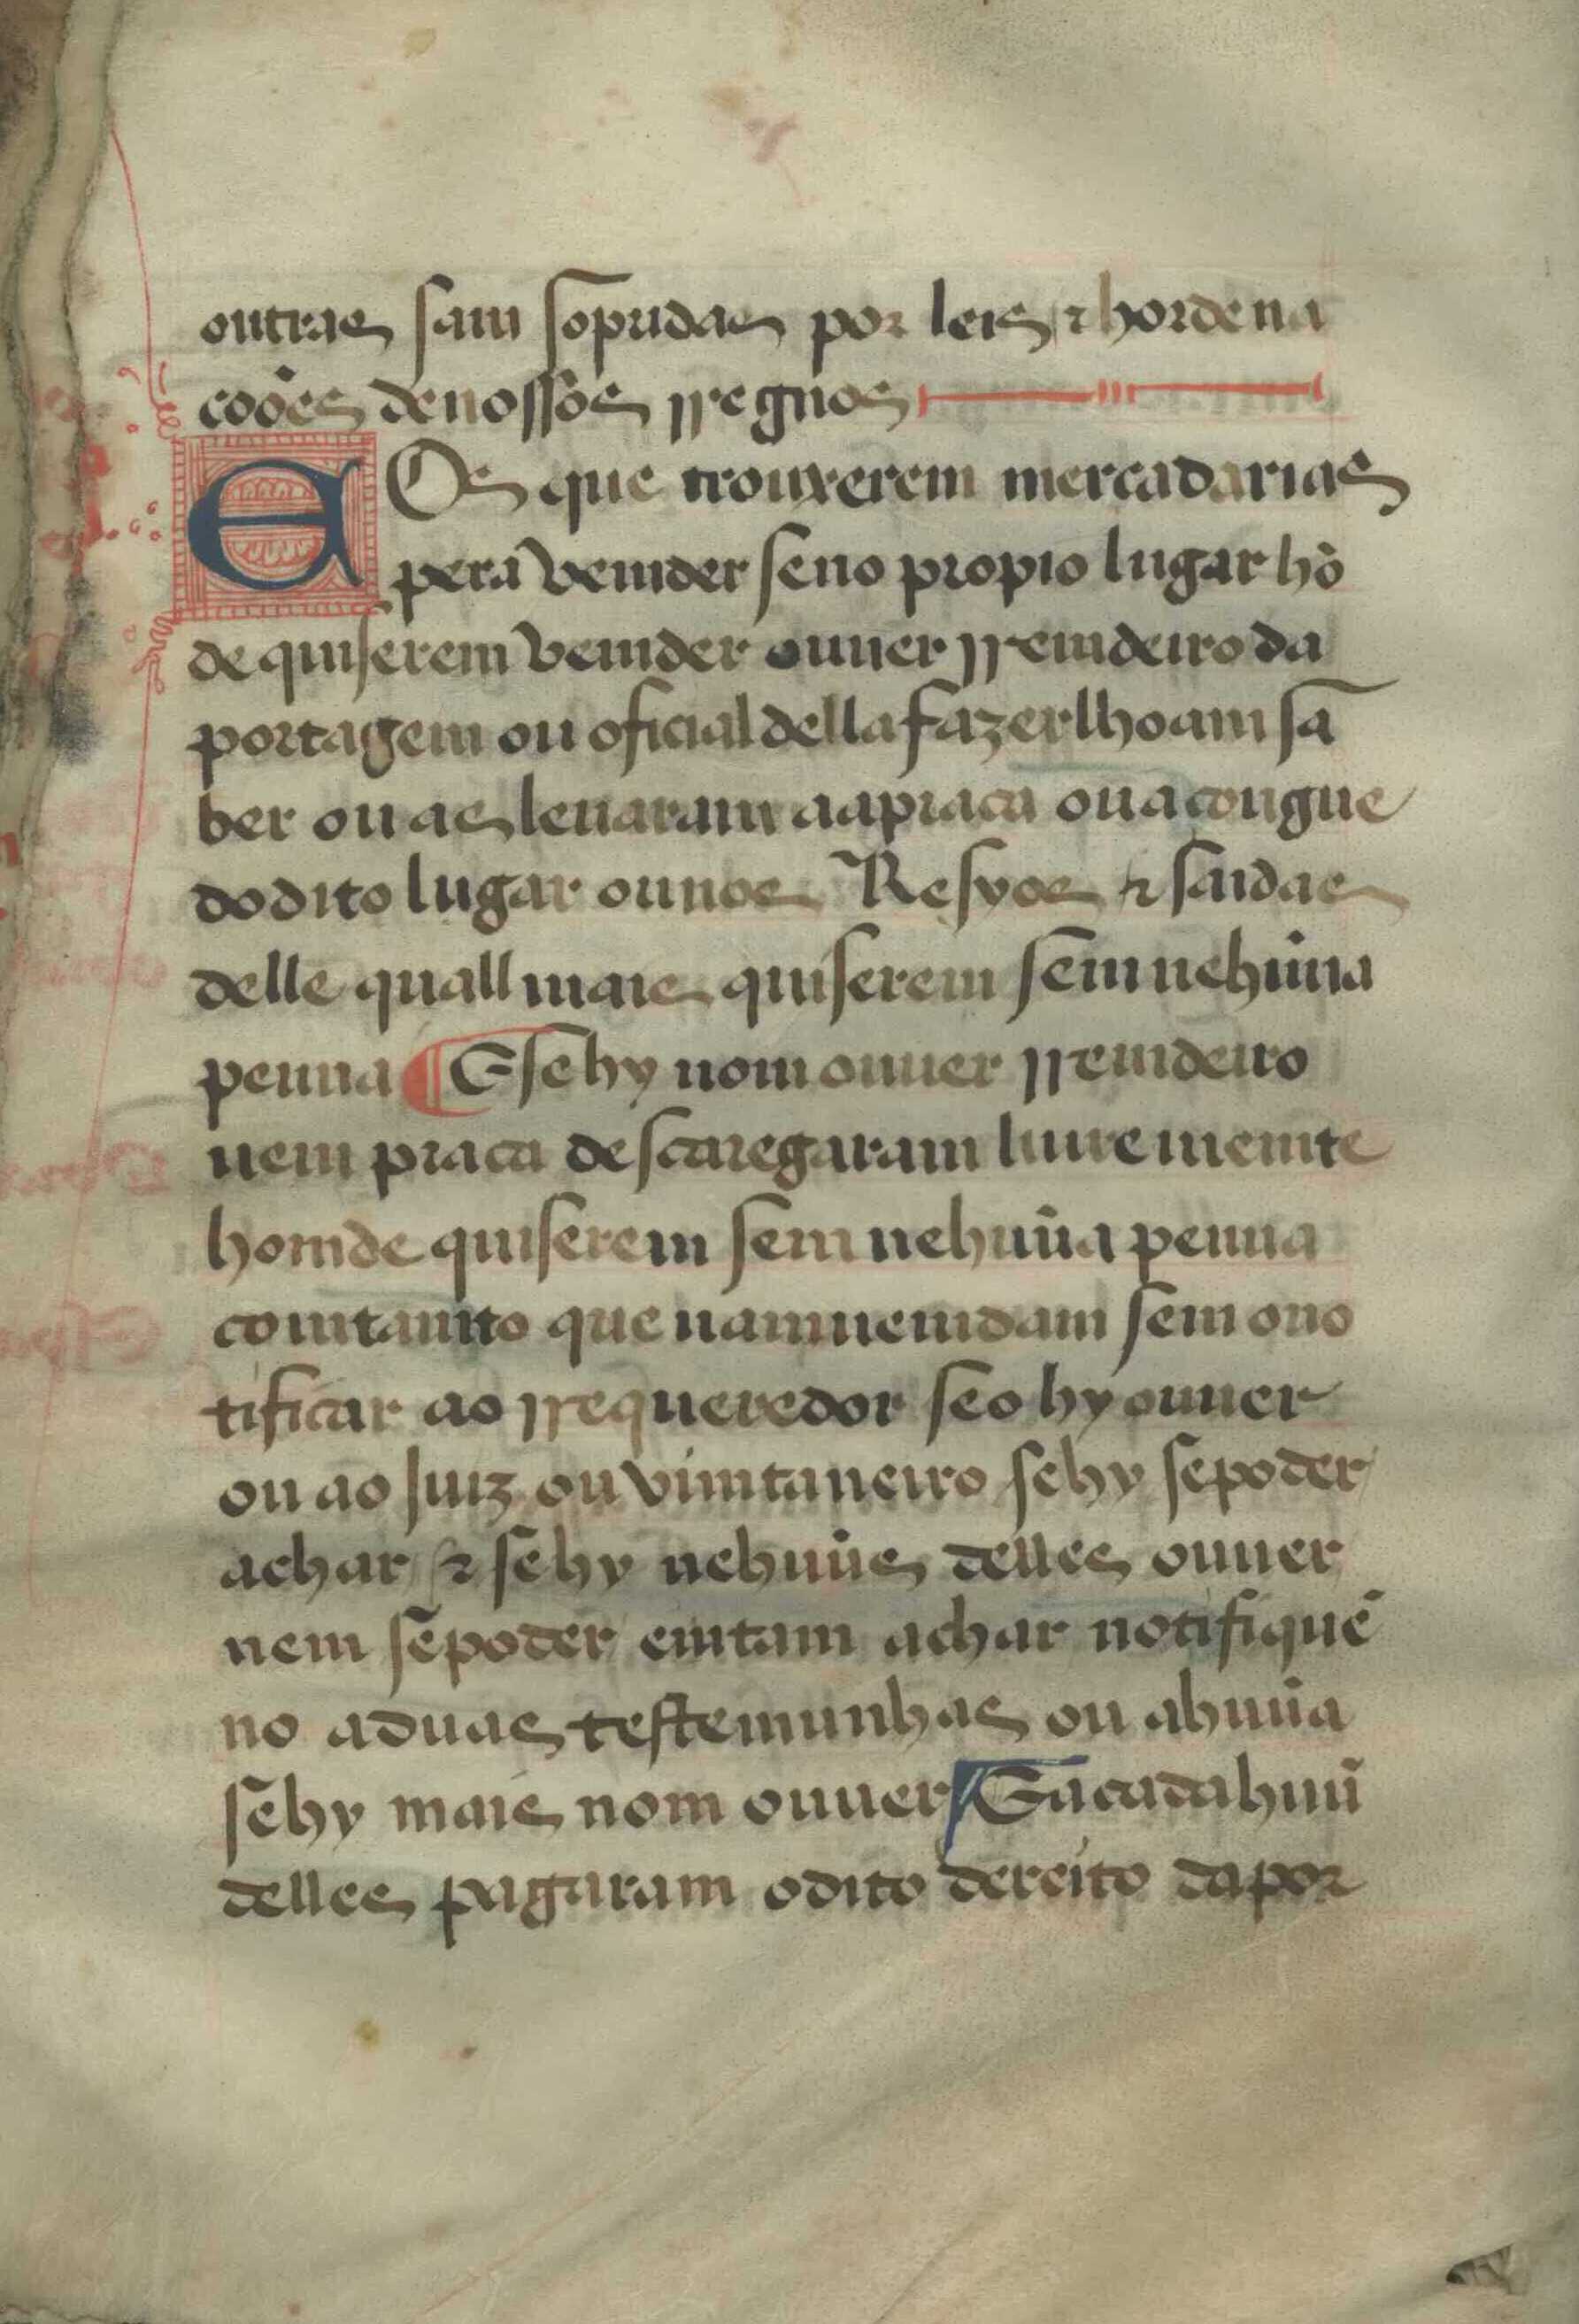 outras sam sopridas por leis ⁊ hordena
cooẽs de nossos rregnos
E Os que trouxerem mercadarias
pera vemder se no propio lugar hõ
de quiserem vemder ouuer rremdeiro da
portagem ou oficial della fazerlhoam sa
ber ou as leuaram aapraca ou acougue
do dito lugar ou nos Resyos ⁊ saidas
delle quall mais quiserem sem nehũua
penna ¶ E se hy nom ouuer rremdeiro
nem praca descaregaram liuremente
homde quiserem sem nehuũa penna
comtamto que nam vemdam sem o no
tificar ao rrequeredor se o hy ouuer
ou ao Juiz ou vimtaneiro se hy se poder
achar ⁊ se hy nehuũs delles ouuer
nem se poder emtam achar notifiquẽ
no a duas testemunhas ou a huũa
se hy mais nom ouuer ¶ E a cada huũ
delles pagaram o dito dereito da por